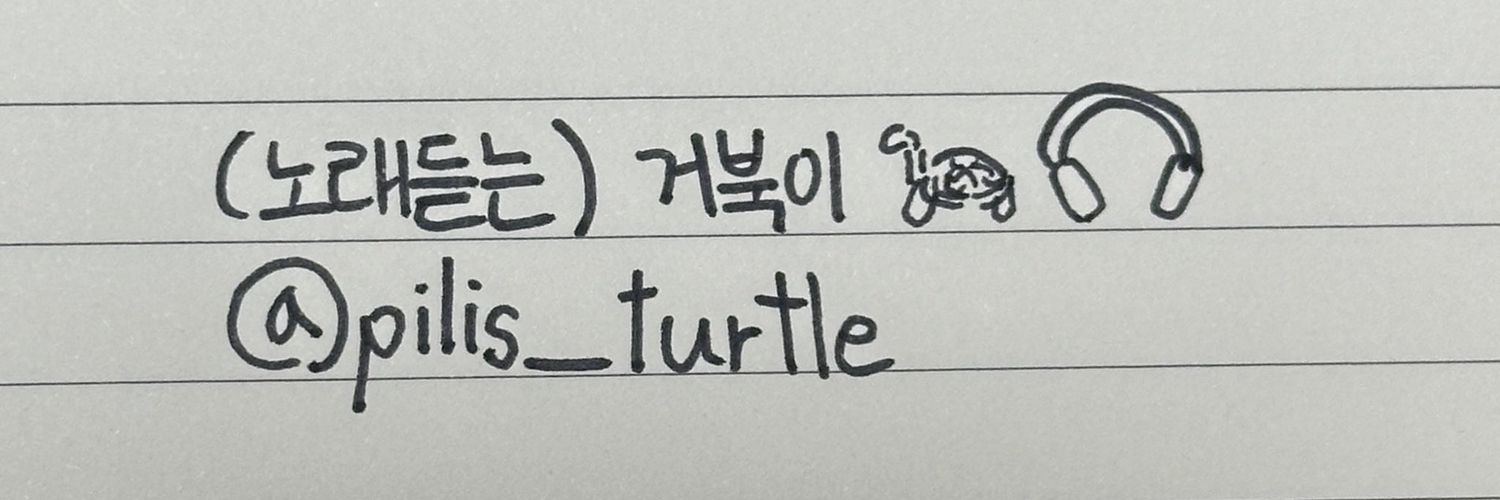 (노래듣는) 거북이
@pilis_turtle